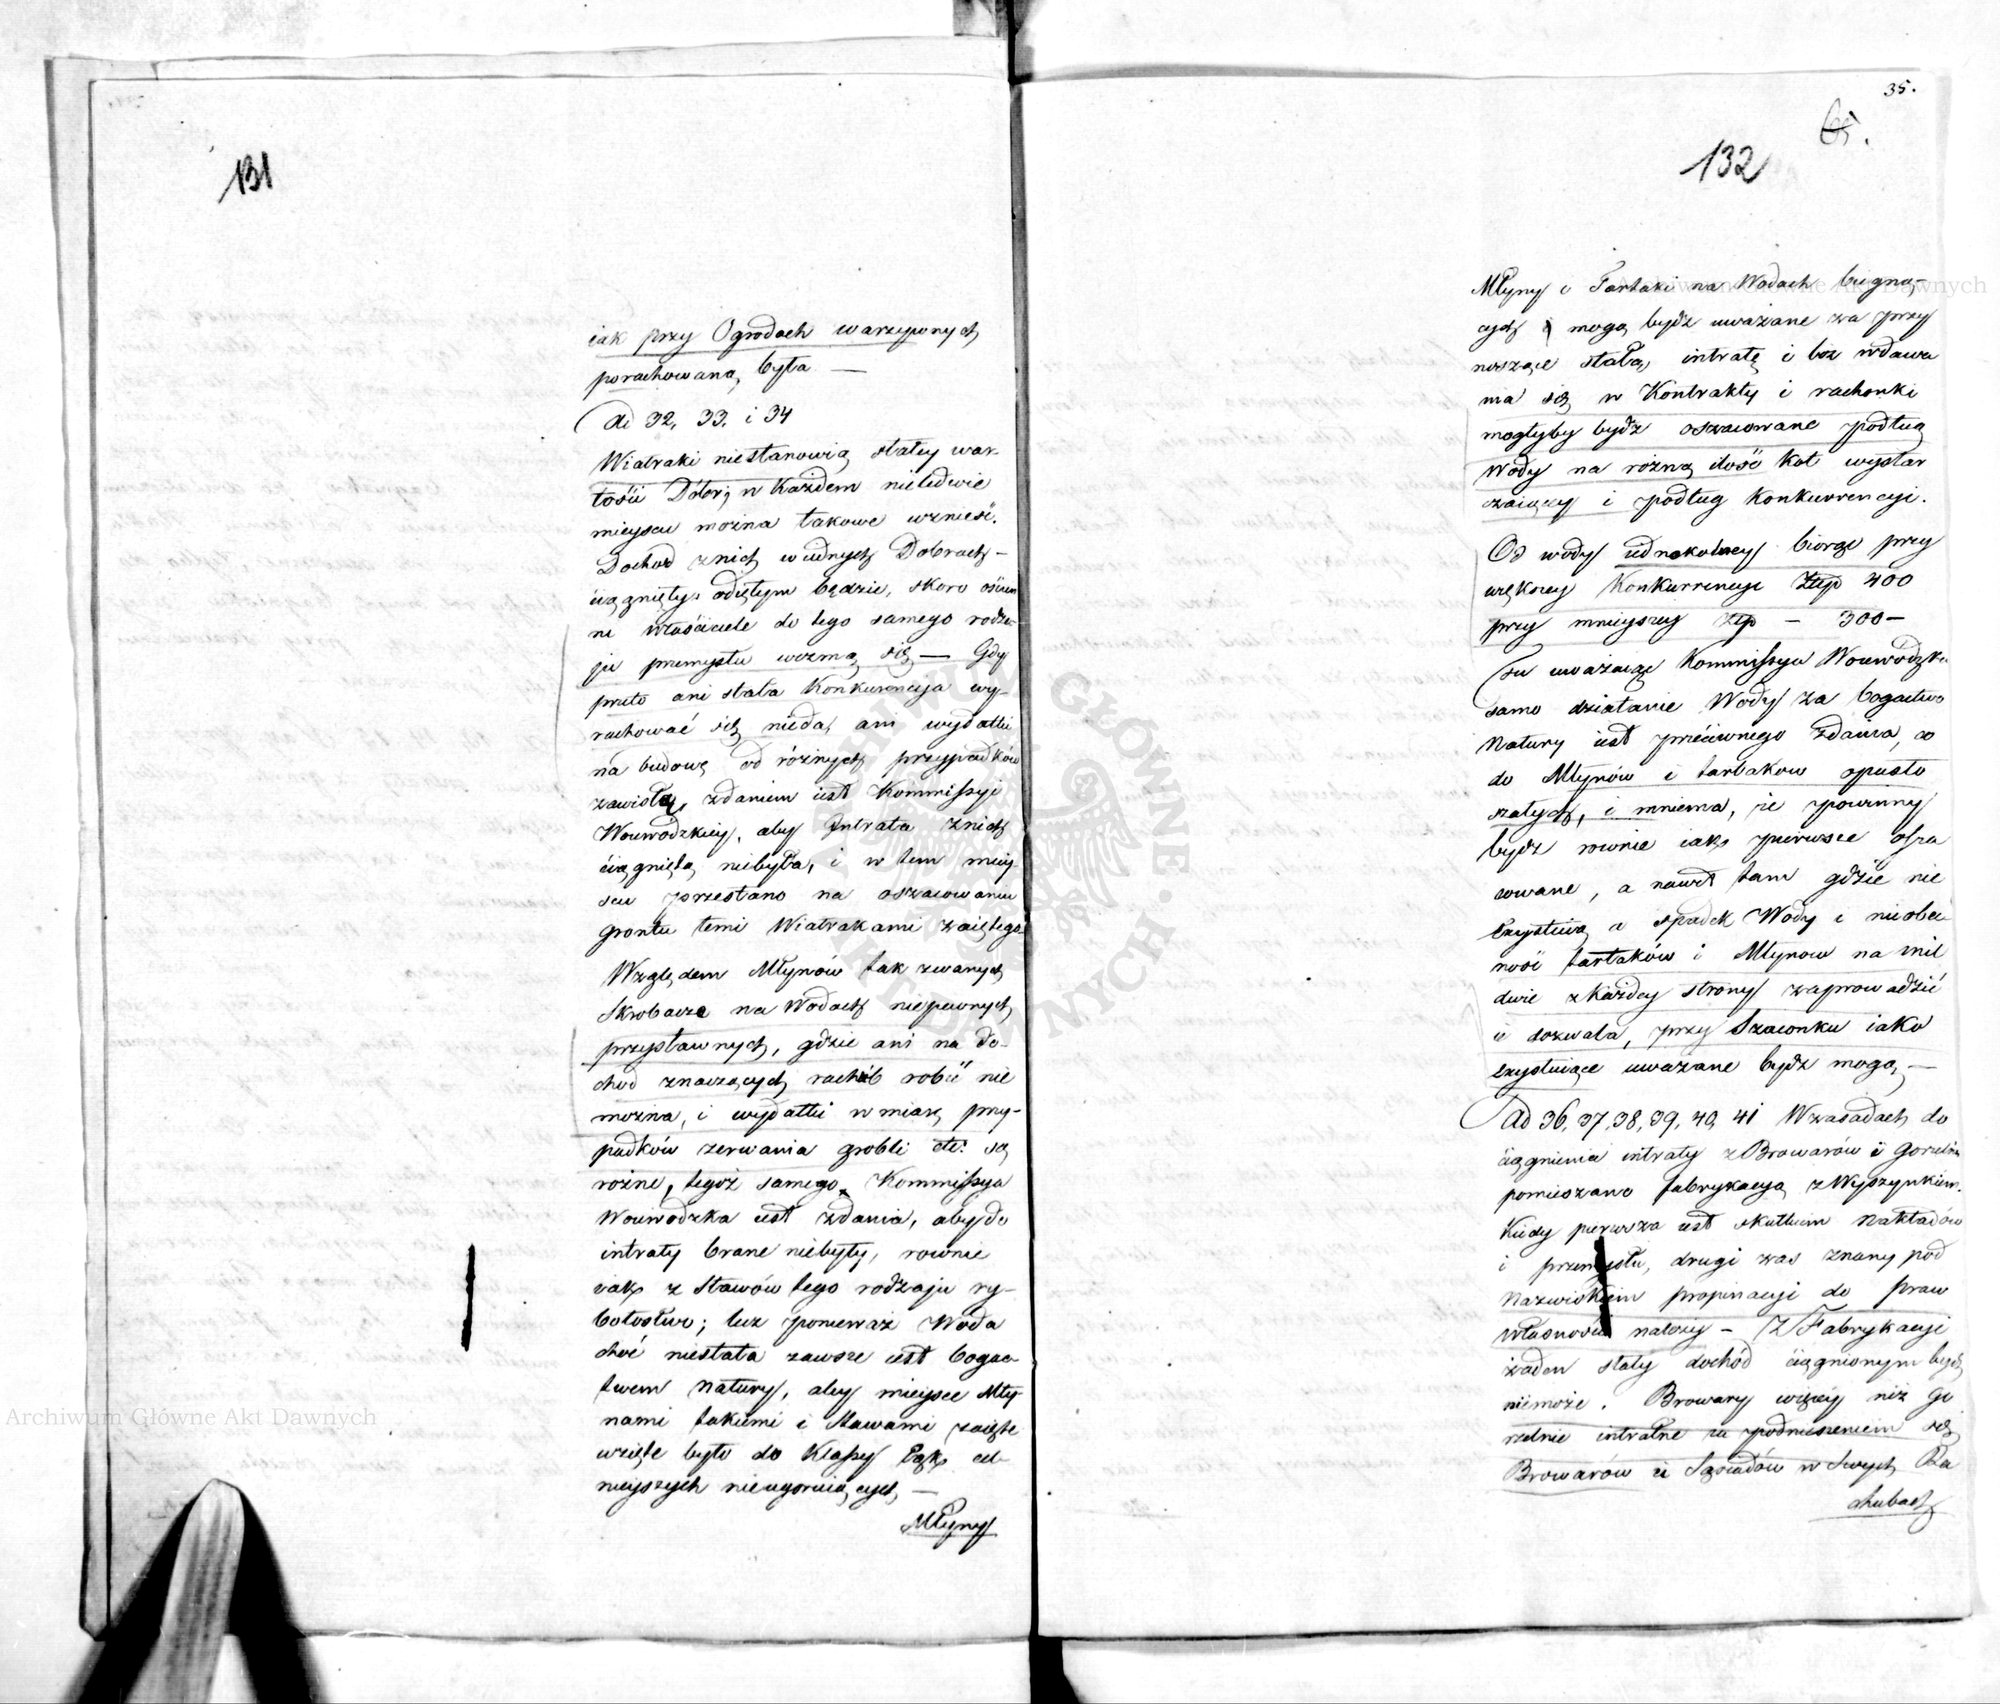 131
iak przy Ogrodach warzywnych
porachowaną była —
Ad 32, 33. i 34
Wiatraki niestanowią stałey war-
tości Dóbr; w Każdem nieledwie
mieyscu można takowe wznieść.
Dochod z nich w iednych Dobrach –
ciągnięty odiętym będzie, skoro ościen
ni właściciele do tego samego rodza-
ju przemysłu wezmą się — Gdy
przeto ani stała Konkurencyja wy-
rachować się nieda, ani wydatki
na budowę od różnych przypadków
zawisłe, zdaniem iest Kommissyi
Woiewodzkiey, aby Intrata z nich
ciągnięta niebyła, i w tem miey
scu przestano na oszacowaniu
grontu temi Wiatrakami zaiętego
Względem Młynów tak zwanych
Skrobacze na Wodach niepewnych
przystawnych, gdzie ani na do-
chod znaczących rachób robić nie
można, i wydatki w miarę przy-
padków zerwania grobli etc: są
rożne, tegoż samego Kommissya
Woiewodzka iest zdania, aby do
intraty brane niebyły, rownie
iak z Stawów tego rodzaju ry-
bołostwo; lecz ponieważ Woda
choć niestała zawsze iest bogac
twem natury, aby mieysce Mły
nami takiemi i Stawami zaięte
wzięte było do Klassy Łąk cel-
nieyszych nieugorniących —
Młyny
35.
65.
132
Młyny i Tartaki na Wodach biegną,
cych mogą bydź uważane za przy
noszące stałą intratę i bez wdawa
nia się w Kontrakty i rachonki
mogłyby bydź oszacowane podług
Wody na rożną ilość Kół wystar
czaiącey i podług Konkurrencyi.
Od wody iednokolney biorąc przy
większey Konkurrencyi Złp 400
przy mnieyszey złp – 300 –
Tu uważaiąc Kommissya Woiewodzka
samo działanie Wody za bogactwo
Natury iest przeciwnego Zdania, co
do Młynów i tartakow opusto
szałych, i mniema, że powinny
bydź rownie iak pierwsze osza
cowane, a nawet tam gdzie nie
Exystuią a spadek Wody i nieobec
ność tartaków i Młynow na mil
dwie z Każdey strony zaprowadzić
ie dozwala, przy Szacunku iako
exystuiące uważane bydź mogą, —
Ad 36, 37, 38, 39, 40, 41 W zasadach do
ciągnienia intraty z Browarów i gorzelni
pomieszano fabrykacyą z Wyszynkiem.
Kiedy pierwsza iest skutkiem Nakładów
i przemysłu, drugi zas znany pod
Nazwiskiem propinacyi do praw
własności należy – Z Fabrykacyi
żaden stały dochód ciągnionym bydź
niemoże. Browary więcey niż go
rzelnie intratne za podniesieniem się
Browarów u Sąsiadów w swych Ra
chubach
Archiwum Główne Akt Dawnych
Archiwum Główne Akt Dawnych
ARCHIWUM GŁÓWNE AKT DAWNYCH